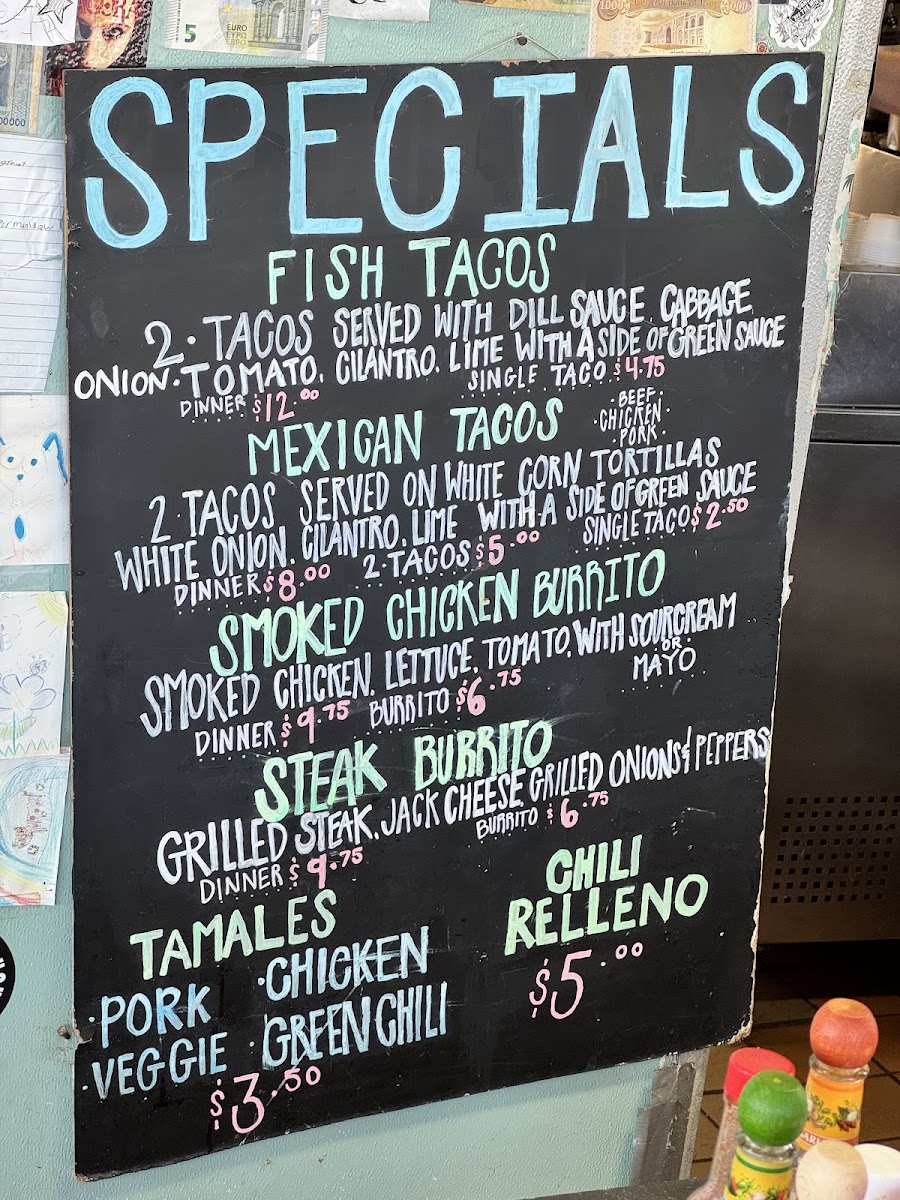 5 EURO
ΕΥΡΩ
1000
SPECIALS
FISH TACOS
2. TACOS SERVED WITH DILL SAUCE, CABBAGE,
ONION. TOMATO, CILANTRO, LIME WITH A SIDE OF GREEN SAUCE
DINNER $12.00 SINGLE TACO $4.75
MEXICAN TACOS
·BEEF·
·CHICKEN·
·PORK·
2.TACOS SERVED ON WHITE CORN TORTILLAS
WHITE ONION, CILANTRO, LIME WITH A SIDE OF GREEN SAUCE
DINNER $8.00 2.TACOS $5.00 SINGLE TACO $2.50
SMOKED CHICKEN BURRITO
SMOKED CHICKEN, LETTUCE, TOMATO, WITH SOURCREAM
·OR·
MAYO
DINNER $9.75 BURRITO $6.75
STEAK BURRITO
GRILLED STEAK, JACK CHEESE, GRILLED ONIONS & PEPPERS
DINNER $9.75 BURRITO $6.75
TAMALES
·PORK ·CHICKEN
·VEGGIE ·GREEN CHILI
$3.50
CHILI
RELLENO
$5.00